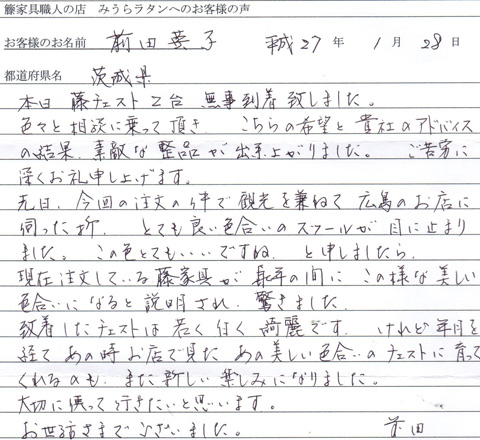 籐家具職人の店 みうらラタンへのお客様の声
お客様のお名前 前田 葉子 平成 27 年 1 月 28 日
都道府県名 茨城県
本日 藤チェスト2台 無事到着致しました。
色々と相談に乗って頂き、こちらの希望と貴社のアドバイス
の結果、素敵な整品が出来上がりました。ご苦労に
深くお礼申し上げます。
先日、今回の注文の件で観光を兼ねて広島のお店に
伺った折、とても良い色合いのスツールが目に止まり
ました。この色とてもいいですね、と申しましたら、
現在注文している藤家具が長年の間に この様な美しい
色合いになると説明され、驚きました。
致着したチェストは若く付く綺麗です。けれど年月を
経て あの時お店で見た あの美しい色合いのチェストに育って
くれるのも、また新しい楽しみになりました。
大切に使って行きたいと思います。
お世話さまでございました。 前田